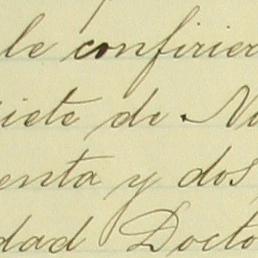 le confirier
siete de No
enta y dos,
dad Docto